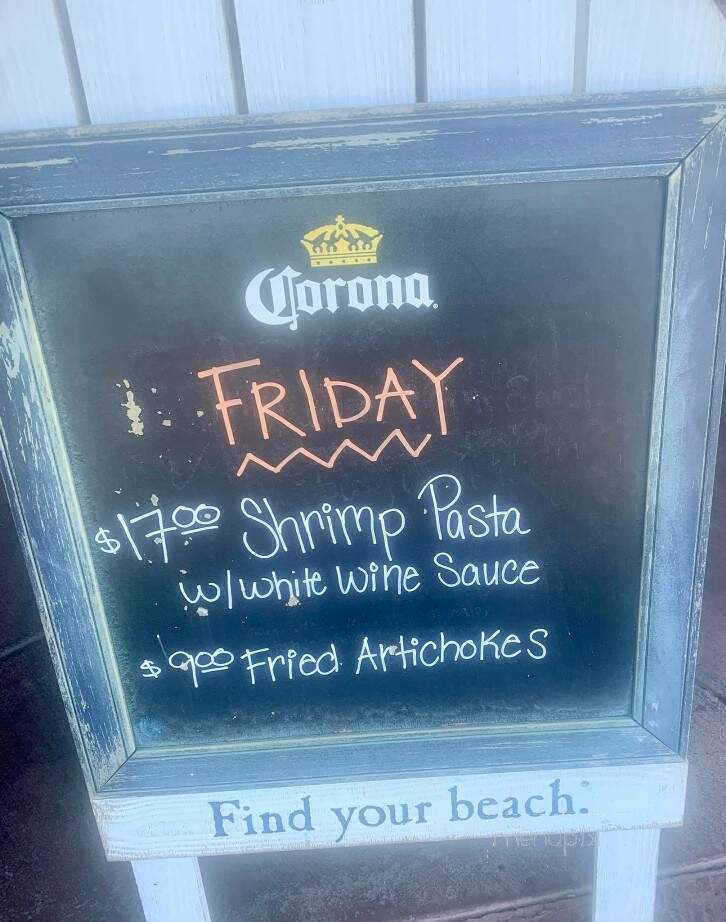 Corona.
FRIDAY
$17.00 Shrimp Pasta
w/white wine Sauce
$9.00 Fried Artichokes
Find your beach.
menupix